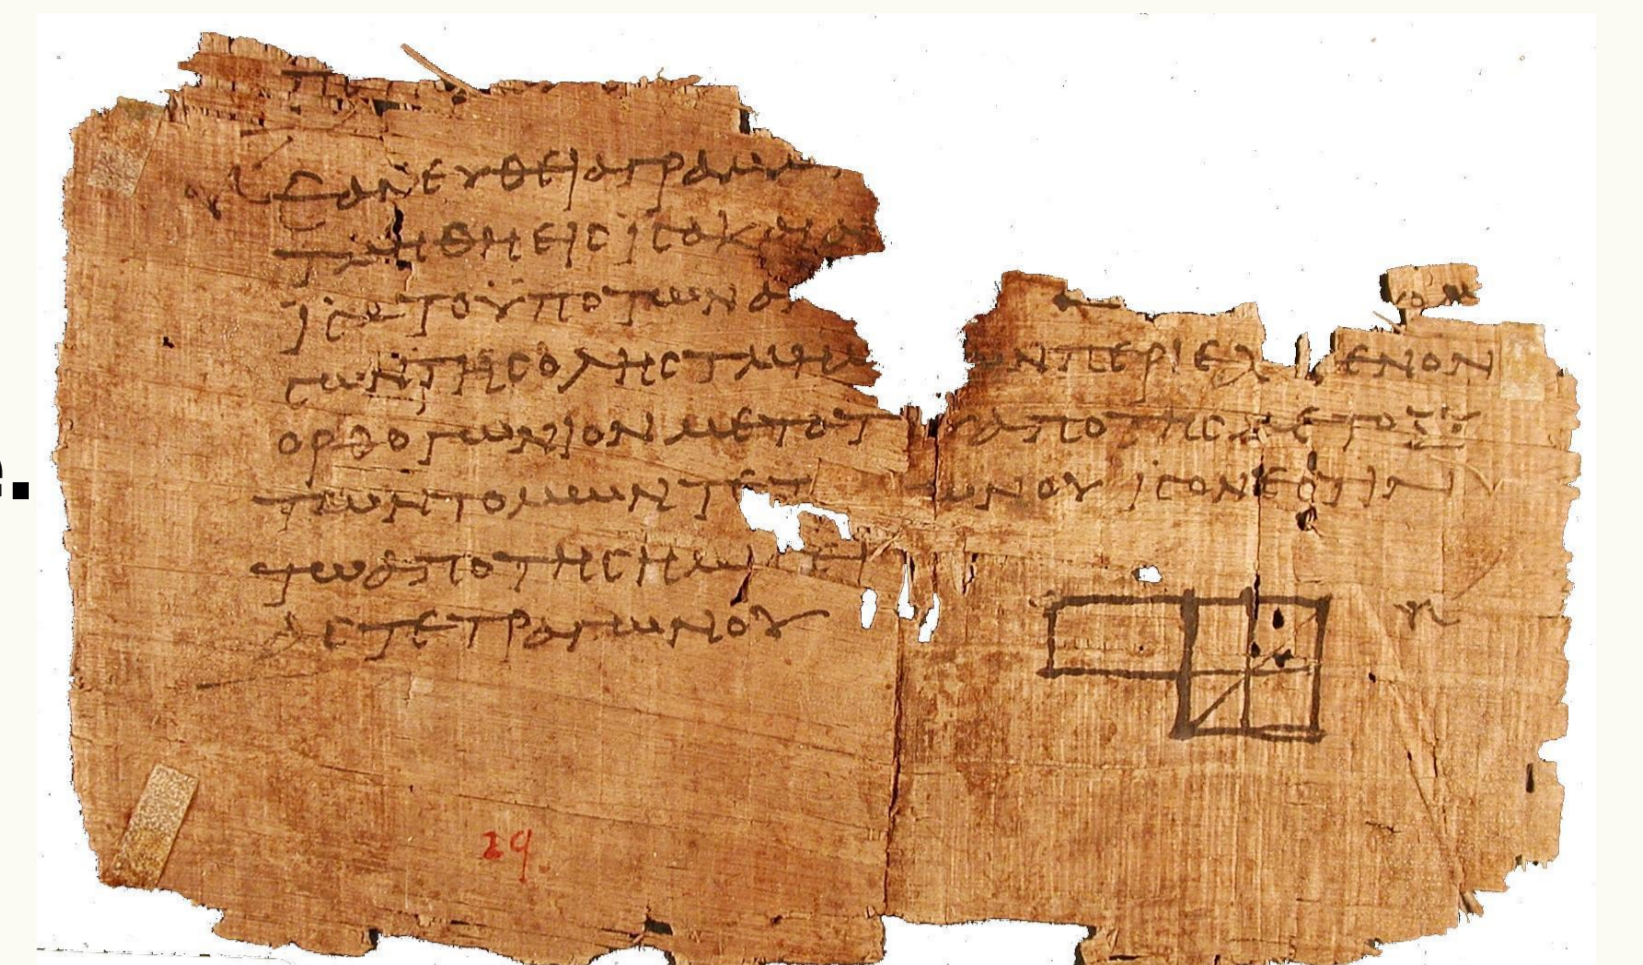 ΕΑΝΕΥΘΕΙΑΓΡΑΜΜ
ΤΜΗΘΗΕΙСΙСΑΚΑΙΑ
ΙСΑΤΟΫΠΟΤΩΝΑ
СΩΝΤΗСΟΛΗСΤΜΗΜ ΩΝΠΕΡΙΕΧ ΕΝΟΝ
ΟΡΘΟΓΩΝΙΟΝΜΕΤΟΤ ΑΠΟΤΗСΜΕΤΟΞΥ
ΤΩΝΤΟΜΩΝΤΕΤ ΩΝΟΥ ΙСΟΝΕСΤΙΝ
ΤΩΑΠΟΤΗСΗΜΙ
ΑСΤΕΤΡΑΓΩΝΟΥ
29.
e.